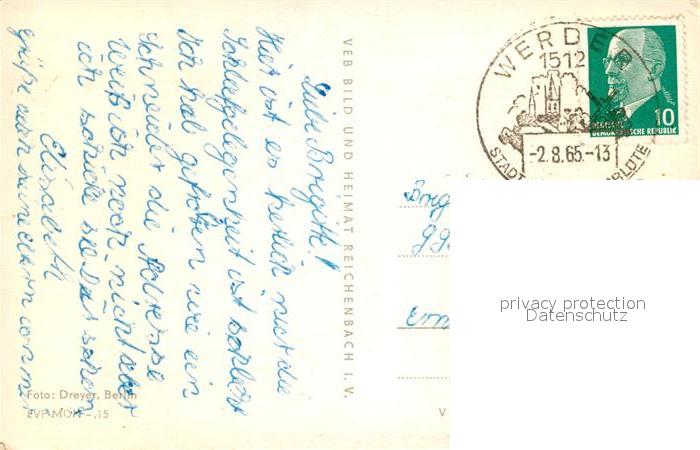 Liebe Brigitt!
Hier ist es herlich nur die
Schlafgelegenheit ist schlecht
Ich hab gefroren wie ein
Schneider die Adresse
weiß ich noch nicht aber
ich schicke sie dir schon
Elisabeth
grüße auch von mir
VEB BILD UND HEIMAT REICHENBACH I. V.
Foto: Dreyer, Berlin
EVP MDN -,15
WERDER
1512
-2.8.65.-13
STADT
BLÜTE
10
DEUTSCHE
DEMOKRATISCHE REPUBLIK
V
privacy protection
Datenschutz